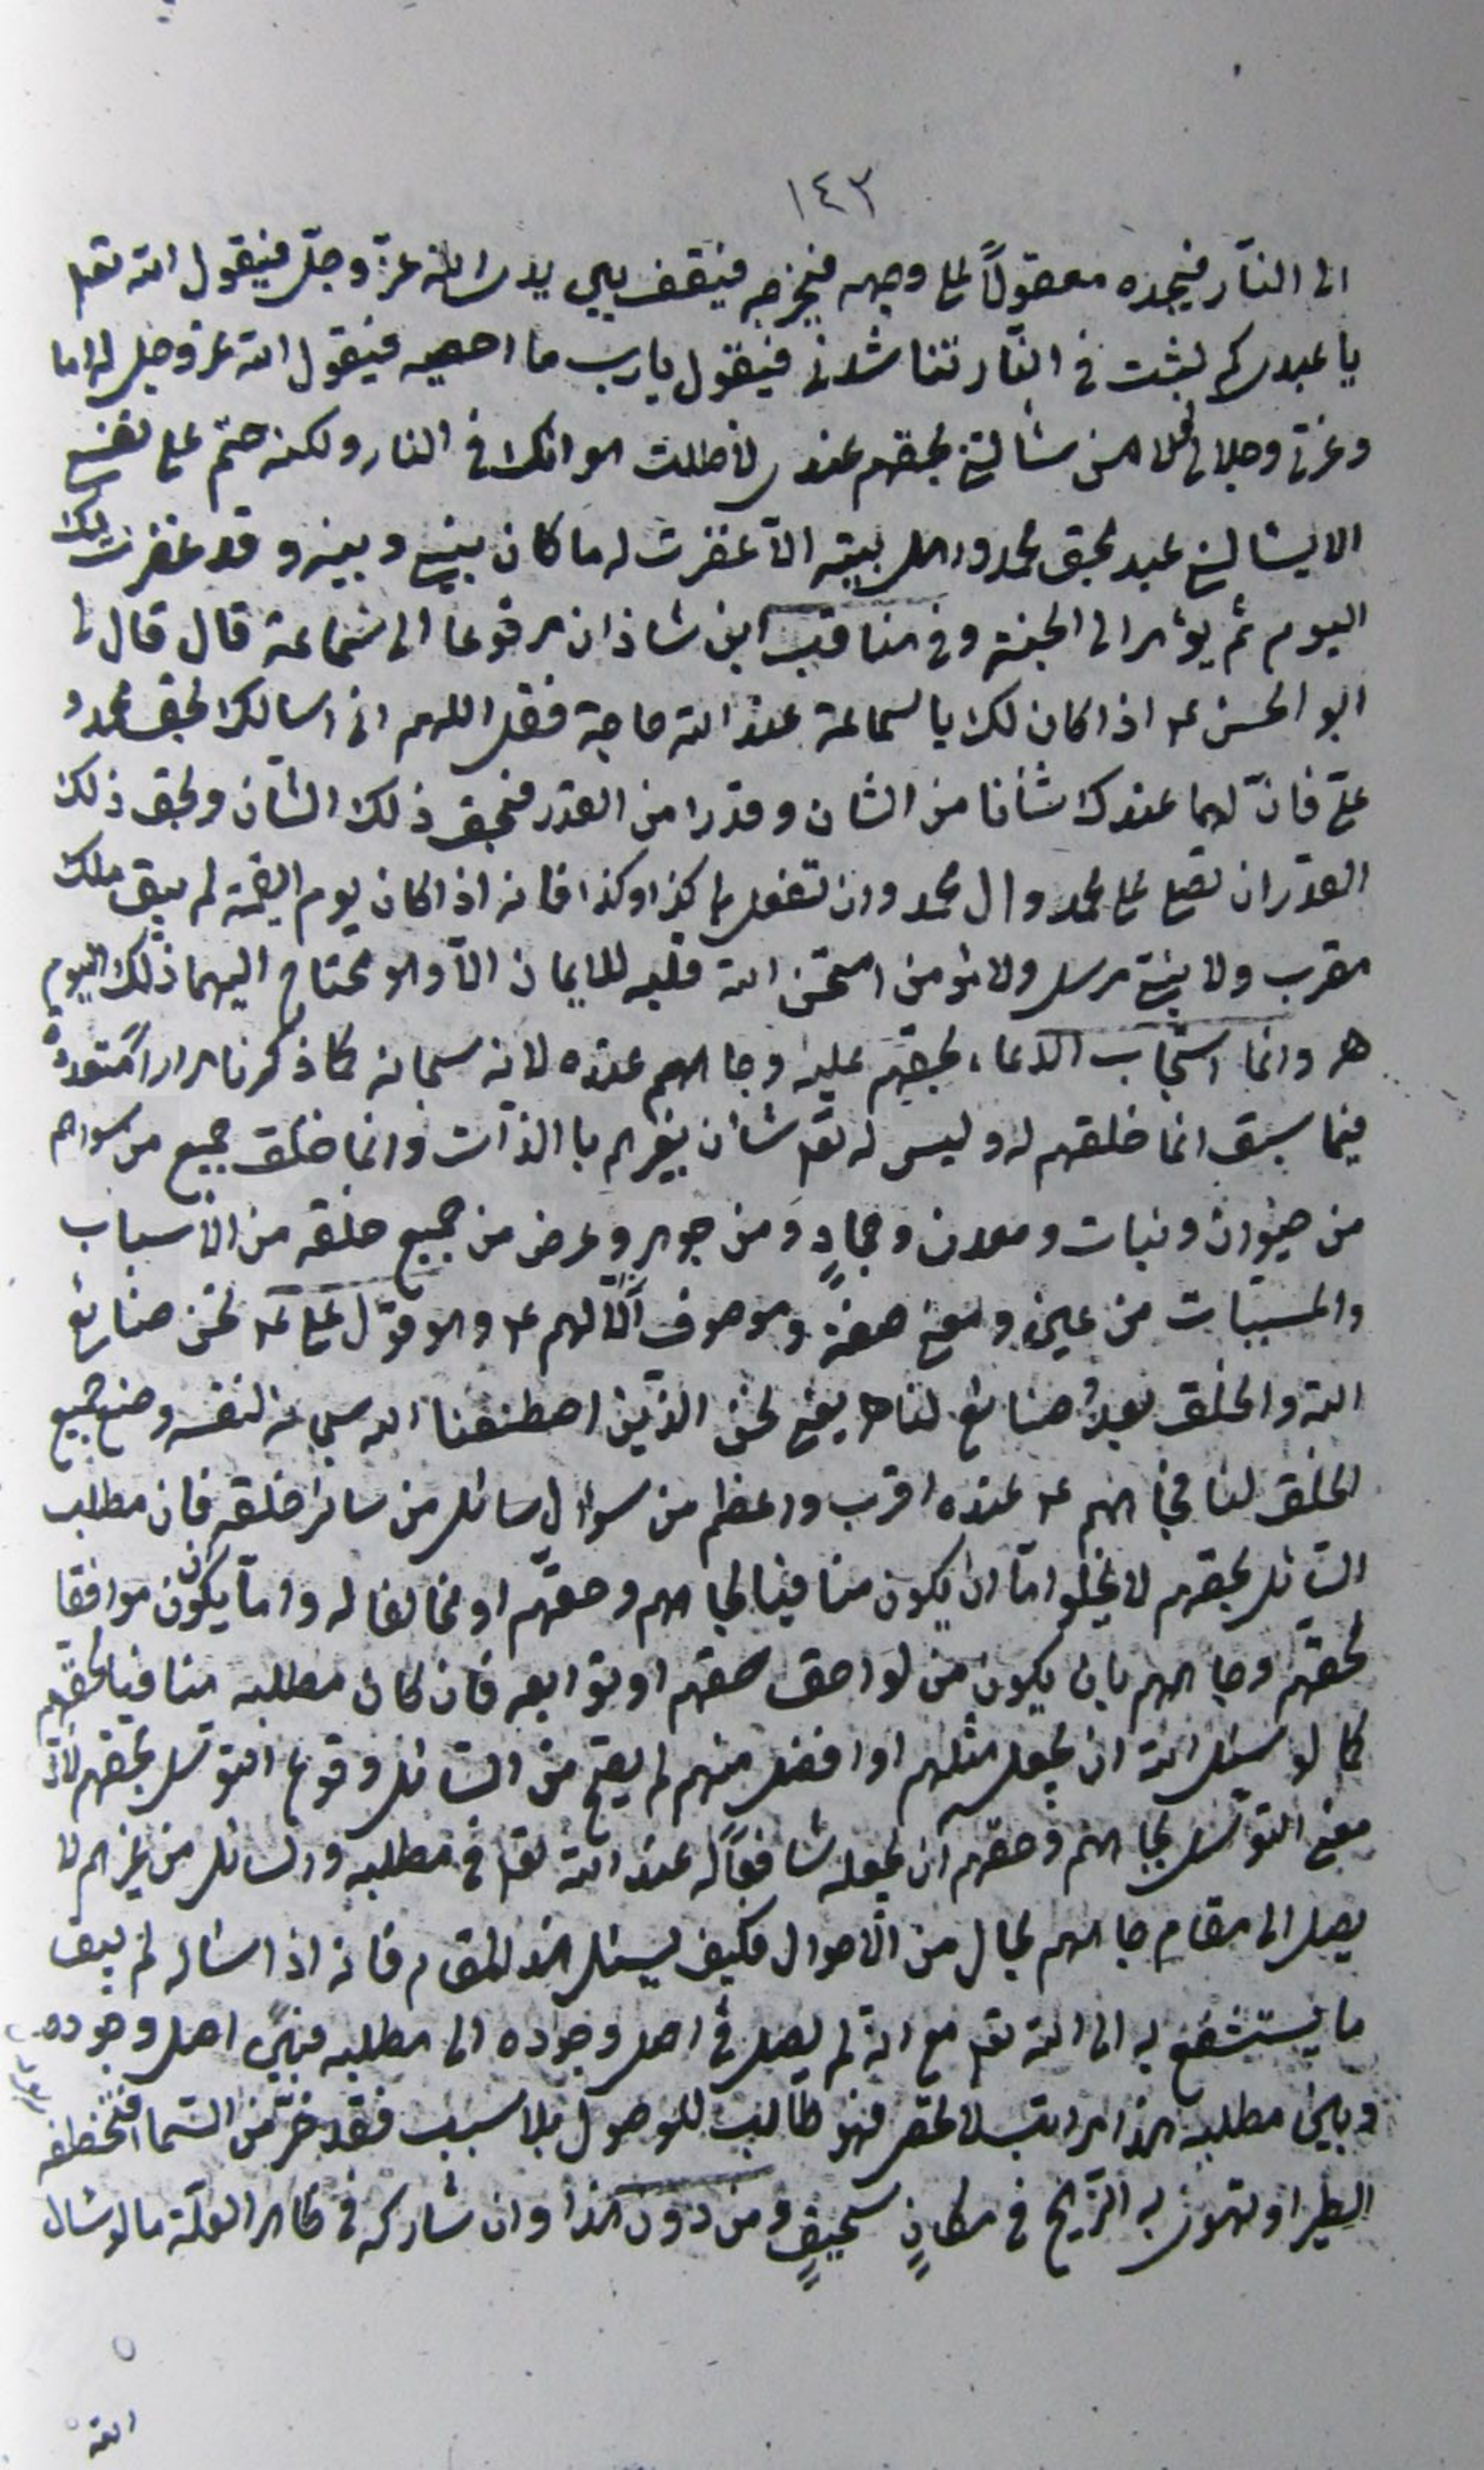 ١٤٣
الى النّار فيجده معقولاً على وجهه فيخرجه فيقف بين يدي الله عزّ وجلّ فيقول الله تعلى
يا عبدي كم لبثت في النّار تناشدني فيقول يارب ما احصيه فيقول الله عز وجل له اما
وعزتي وجلالي لولا من سألتني بحقهم عندي لاطلت هوانك في النار ولكنه حتم على نفسي
الا يسالني عبد بحق محمد واهل بيته الاّ غفرت له ما كان بيني وبينه وقد غفرت لك
اليوم ثم يؤمر الى الجنة وفي مناقب ابن شاذان مرفوعا الى سماعة قال قال لي
ابو الحسن عه اذا كان لك يا سماعة عند الله حاجة فقل اللهم اني اسالك بحق محمد و
عليّ فانّ لهما عندك شأنا من الشان وقدرا من القدر فبحق ذلك الشان وبحق ذلك
القدر ان تصلي على محمد وال محمد وان تفعل بي كذا وكذا فانه اذا كان يوم القيمة لم يبق ملك
مقرب ولا نبيّ مرسل ولا مؤمن امتحن الله قلبه للايمان الاّ وهو محتاج اليهما ذلك اليوم
هـ وانما استجاب الدعاء بحقهم عليه وجاههم عنده لانه سبحانه كما ذكرنا مرارا متعددة
فيما سبق انما خلقهم له وليس له تعلى شان بغيرهم بالذات وانما خلق جميع من سواهم
من حيوان ونبات ومعدن وجمادٍ ومن جوهر وعرض من جميع خلقه من الأسباب
والمسببات من عين ومعنى صفة وموصوف الاّ لهم عه وهو قول علي عه نحن صنائع
الله والخلق بعدُ صنائع لنا هـ يعني نحن الذّين اصطنعنا الله سبحانه لنفسه وصنع جميع
الخلق لنا فجاههم عه عنده اقرب واعظم من سوال سائل من سائر خلقه فان مطلب
السّائل بحقهم لا يخلو امّا ان يكون منافيا لجاههم وحقهم او مخالفا له وامّا ان يكون موافقا
لحقهم وجاههم بان يكون من لواحق حقهم او توابعه فان كان مطلبه منافيا لحقهم
كما لو سئل الله ان يجعل مثلهم او افضل منهم لم يصح من السّائل وقوع التوسّل بحقهم لانّ
معنى التوسّل بجاههم وحقهم ان يجعله شافعاً له عند الله تعلى في مطلبه والسائل من غيرهم لا
يصل الى مقام جاههم بحال من الأحوال فكيف يسئل هذا المقام فانه اذا ساله لم يبق
ما يستشفع به الى الله تعلى مع انّه لم يصل في اصل وجوده الى مطلبه فبين اصل وجوده
وبين مطلبه هذا مراتب لا تحصر فهو طالب للوصول بلا سبب فقد خرّ من السّما فتخطفه
الطير او تهوي به الرّيح في مكانٍ سحيقٍ ومن دون هذا وان شاركه في ظاهر العلّة ما لو سال
الله